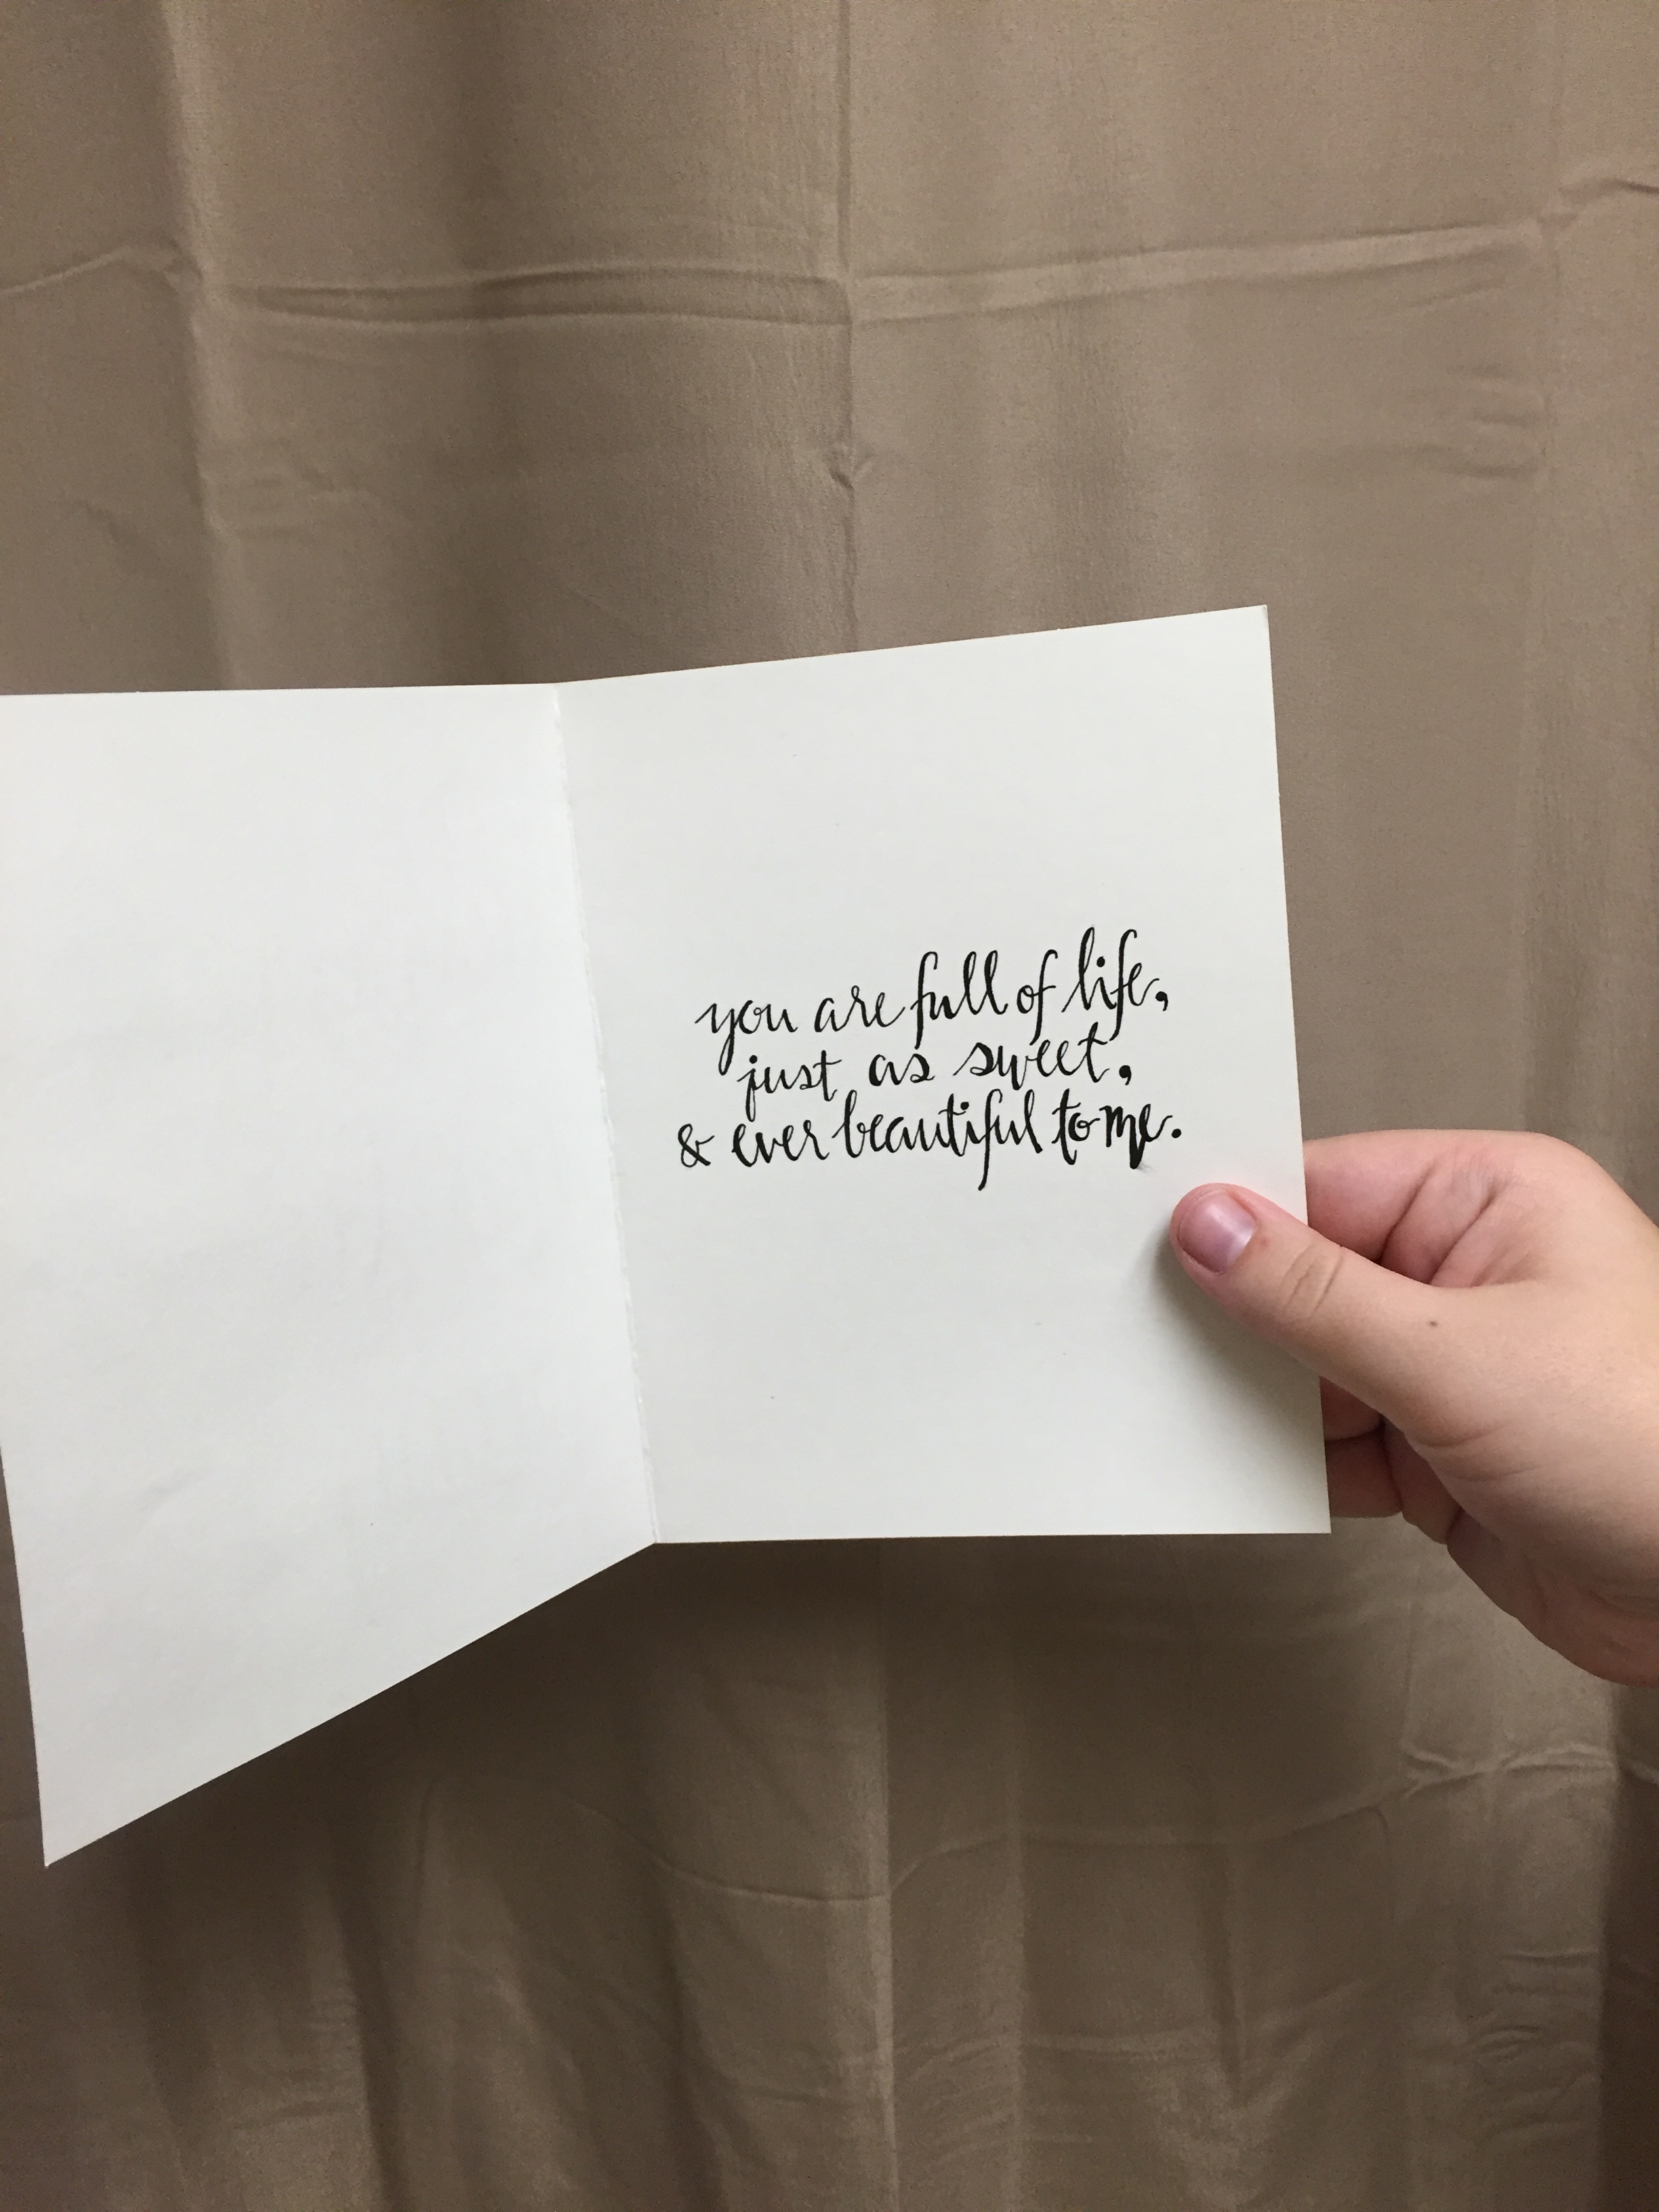 you are full of life,
just as sweet,
& ever beautiful to me.